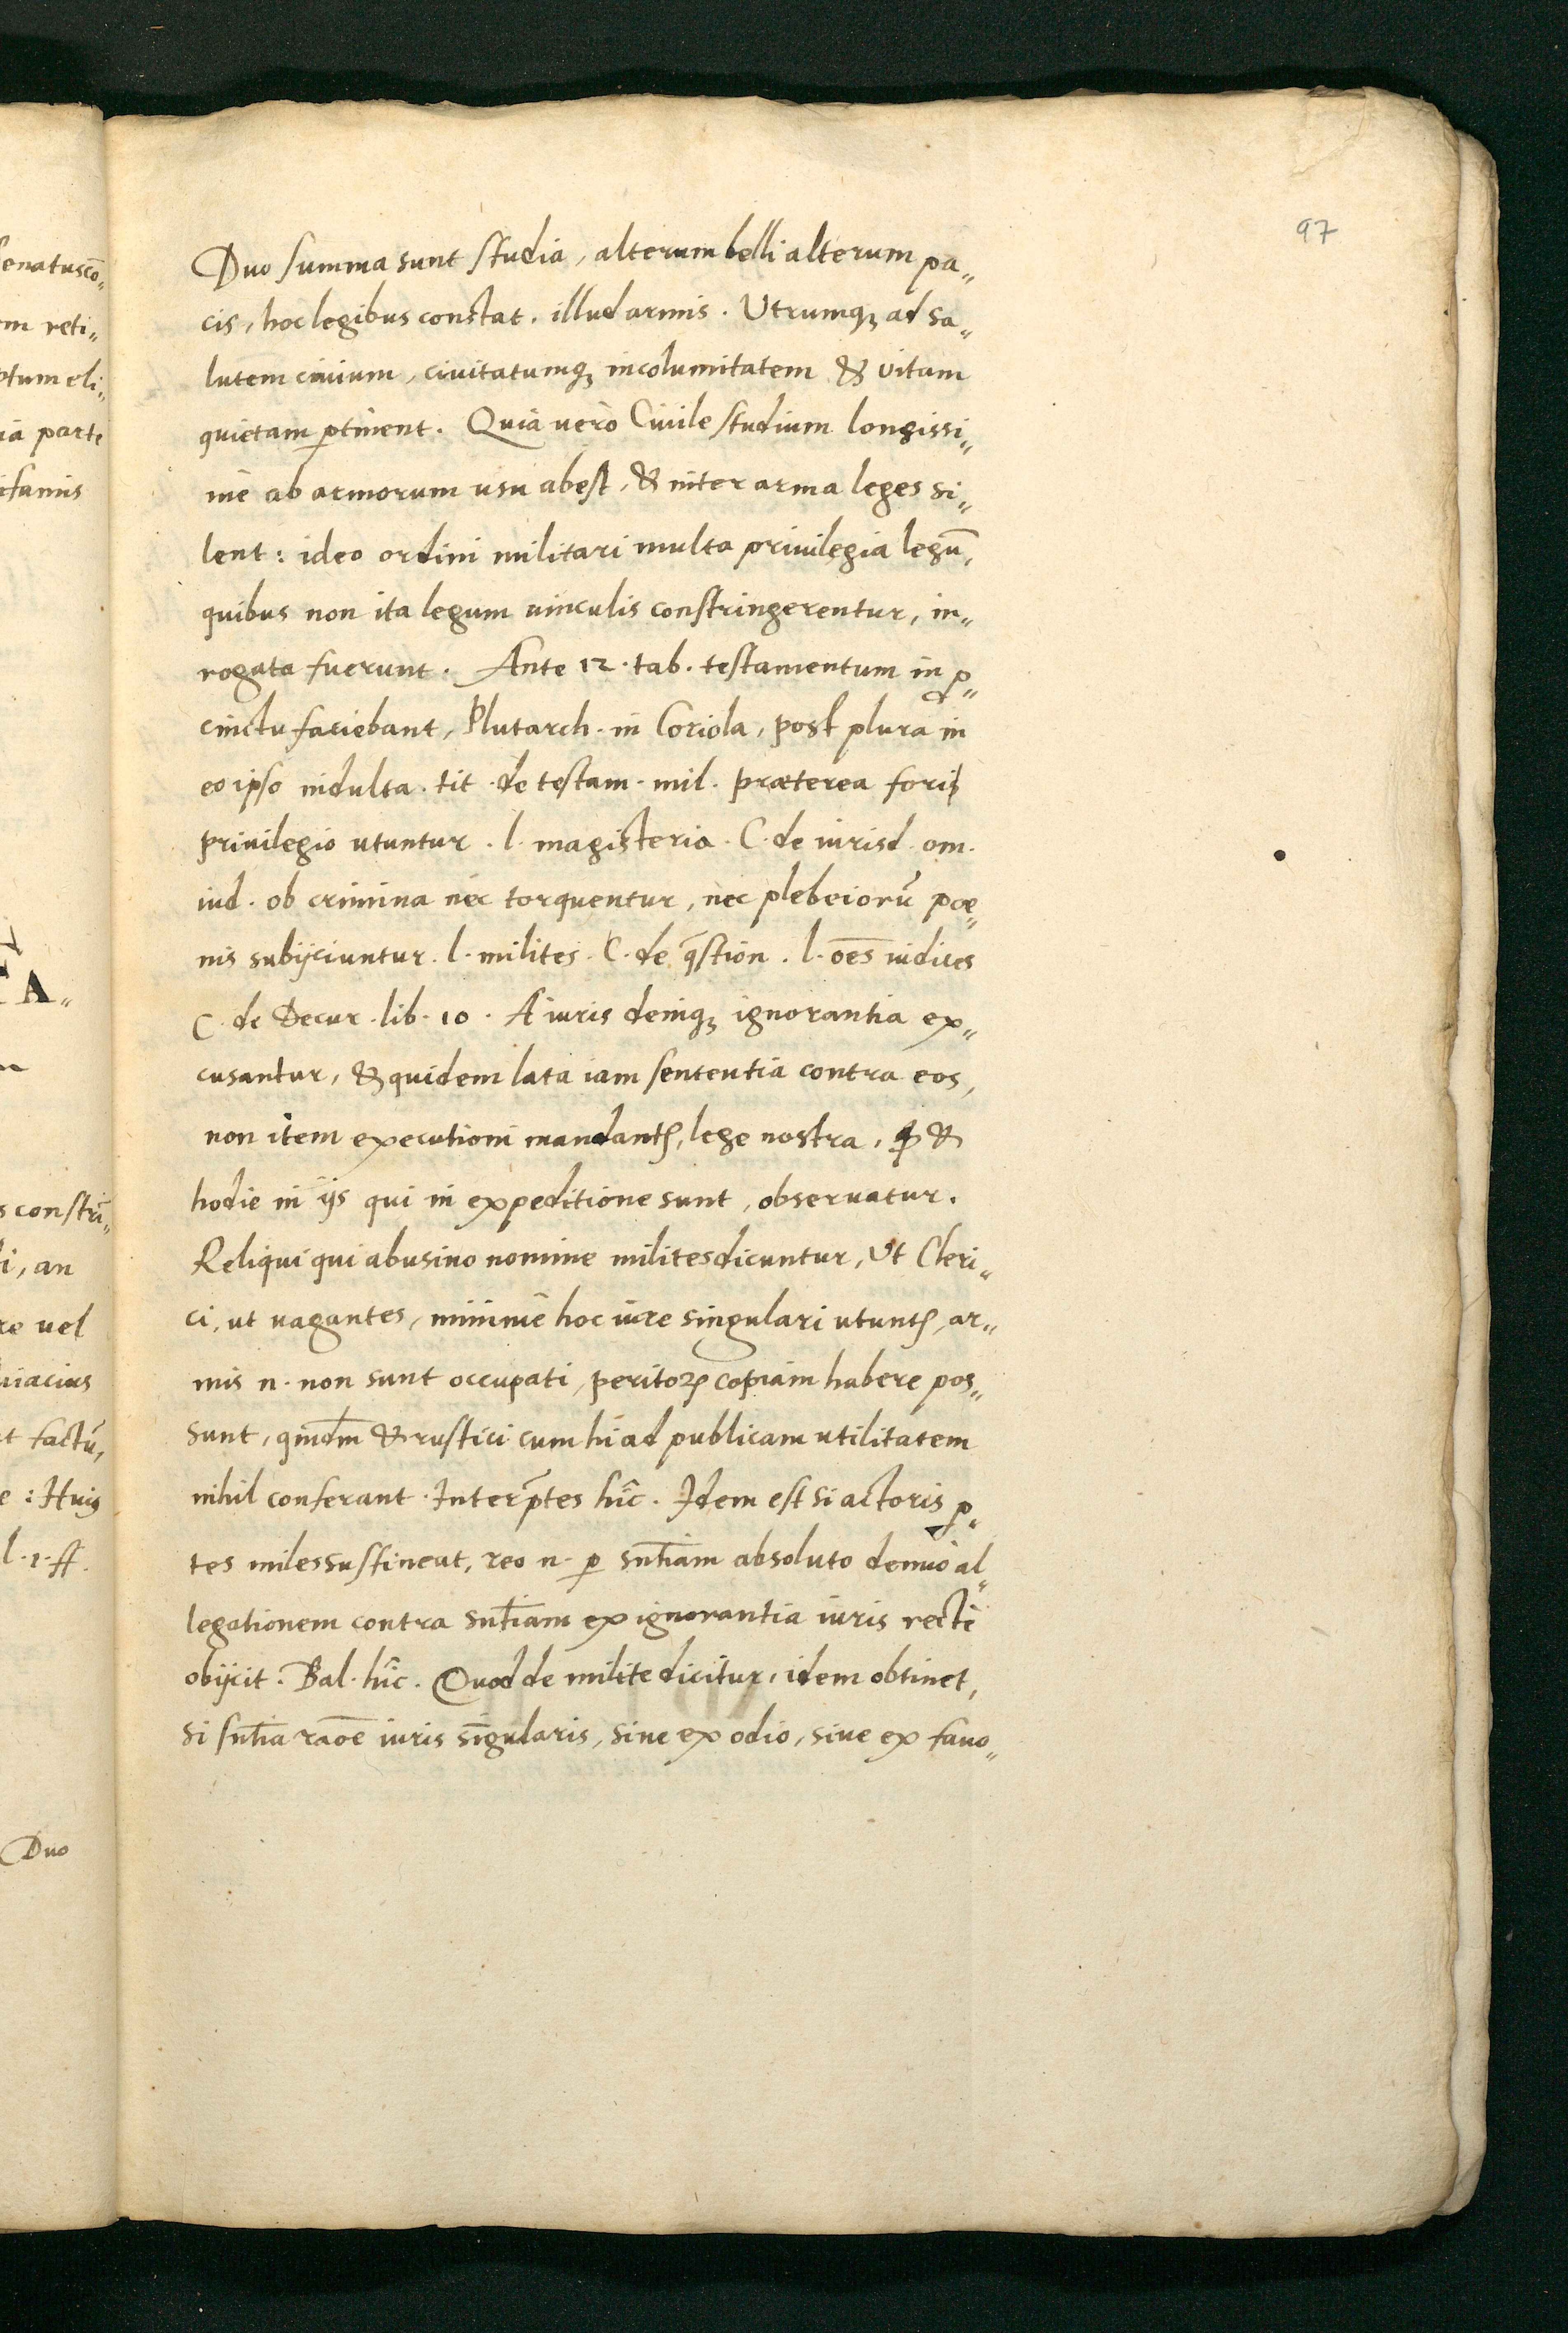 97
Duo summa sunt studia, alterum belli alterum pa„
cis, hoc legibus constat, illud armis. Utrumqꝫ ad sa„
lutem ciuium, ciuitatumqꝫ incolumitatem & vitam
quietam ꝑtinent. Quia uero Ciuile studium longissi„
me ab armorum usu abest, & inter arma leges si„
lent: ideo ordini militari multa priuilegia legū,
quibus non ita legum uinculis constringerentur, in„
rogata fuerunt. Ante 12. tab. testamentum in ꝓ„
cinctu faciebant, Plutarch. in Coriola, post plura in
eo ipso indulta. tit. de testam. mil. praeterea fori
priuilegio utuntur. l. magisteria. C. de iurisd. om.
iud. ob crimina nec torquentur, nec plebeiorū poe„
nis subijciuntur. l. milites. C. de q̄stion. l. oēs iudices
C. de Decur. lib. 10. A iuris deniqꝫ ignorantia ex„
cusantur, & quidem lata iam sententia contra eos,
non item executioni mandant᷒, lege nostra, ꝙ &
hodie in ijs qui in expeditione sunt, obseruatur.
Reliqui qui abusiuo nomine milites dicuntur, Ut Cleri„
ci, ut uagantes, minime hoc iure singulari utunt᷒, ar„
mis n. non sunt occupati, peritoꝝ copiam habere pos„
sunt, qmdm̄ & rustici cum hi ad publicam utilitatem
nihil conferant. Interp̄tes hic. Idem est si actoris ꝑ„
tes miles sustineat, reo n. ꝑ sn̄tiam absoluto denuo al„
legationem contra sn̄tiam ex ignorantia iuris recte
obijcit. Bal. hic. Quod de milite dicitur, idem obtinet,
si sn̄tia raōe iuris singularis, siue ex odio, siue ex fauo„
senatuscō„
em reti„
ptum eli„
ia parte
nfamis
A„
s constri„
i, an
re vel
uiacius
t factū,
e: Huiꝰ
l. 1. ff.
Duo